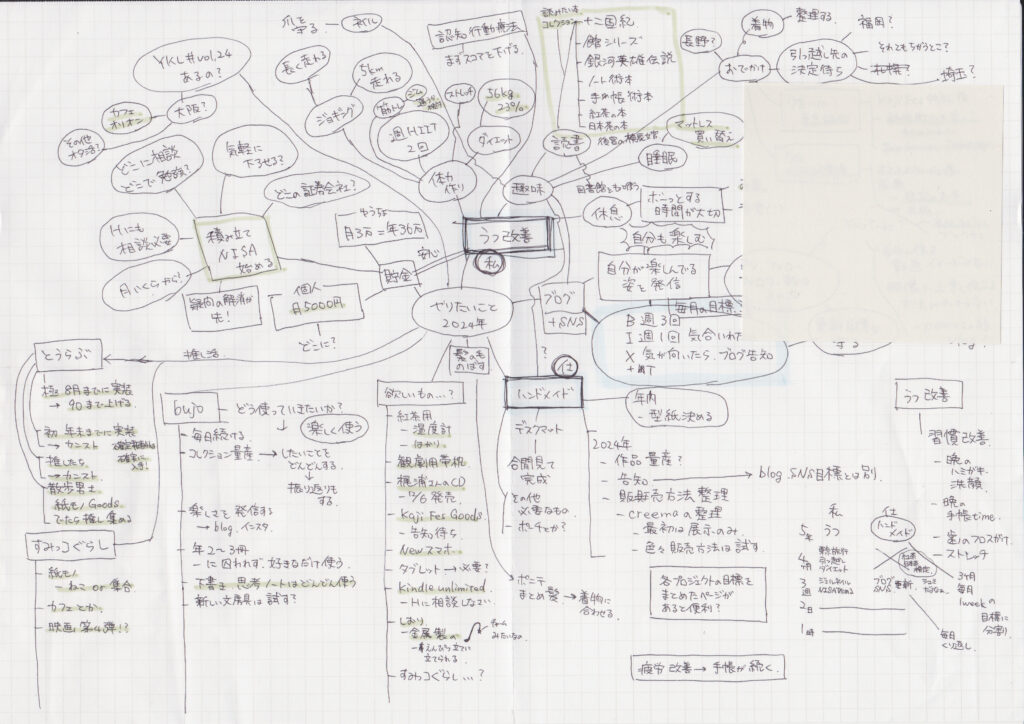 爪を塗る
ネイル
YKL#vol.24
あるの?
大阪?
カフェ
オリオン
その他
オタ活?
長く走れる
5km
走れる
ジョギング
認知行動療法
まずスコア下げる
筋トレ
ジム
週HIIT
2回
ストレッチ
56kg
23%
ダイエット
体力
作り
読みたい本
コレクション
十二国紀
- 館シリーズ
- 銀河英雄伝説
- ノート術本
- 手帳術本
- 紅茶の本
- 日本茶の本
読書
図書館とも使う
趣味
着物
整理する
長野?
おでかけ
引っ越し先の
決定待ち
福岡?
それともちがうとこ?
札幌?
埼玉?
マットレス
買い替え
睡眠
休息
ボーっとする
時間が大切
自分も楽しむ
自分が楽しんでる
姿を発信
うつ改善
私
どこに相談
どこで勉強?
気軽に
下ろせる?
どこの証券会社?
Hにも
相談必要
月いくらから?
積み立て
NISA
始める
疑問の解消が
先!
ゆうちょ
月3万=年36万
貯金
安心
個人
月5000円
どこに?
やりたいこと
2024年
髪のも
のばす
ブログ
+SNS
毎月の目標
B 週3回
I 週1回 気合いれた
X 気が向いたら、ブログ告知
する
?
仕
ハンドメイド
年内
- 型紙決める
デスクマット
合間見て
完成
その他
必要なもの
- ポーチとか?
2024年
- 作品量産?
- 告知 → blog.SNS目標とは別
- 販売方法整理
- creemaの整理
- 最初は展示のみ
- 色々販売方法は試す。
推し活
とうらぶ
極 8月までに実装
→ 90まで上げる
初 年末までに実装
→ カンスト
推したち
→ カンスト
散歩男士
紙モノGoods
でたら推し集める
すみっコぐらし
- 紙モノ
- ねこ or 集合
- カフェとか。
- 映画第4弾!?
bujo
どう使っていきたいか?
楽しく使う
- 毎日続ける
- コレクション量産 → したいことを
どんどんする
振り返りも
する。
- 楽しさを発信する
→ blog.インスタ
- 年2〜3冊
- に囚われず、好きなだけ使う
- 下書き、思考ノートはどんどん使う
- 新しい文房具は試す?
欲しいもの…?
- 紅茶用
- 温度計
- はかり
- 観劇用双眼鏡
- Kaji Fes Goods
- 告知待ち
- Newスマホ
- タブレット → 必要?
- Kindle unlimited
- Hに相談しなさい
- しおり
- 金属製の
チャーム
みたいなの
立てられる
- すみっコぐらし…?
- ボニテ
まとめ髪 → 着物に
合わせる
各プロジェクトの目標を
まとめたページが
あると便利?
疲労改善 → 手帳が続く
うつ改善
習慣改善
- 晩の
ハミガキ
洗顔
- 晩の
手帳time
- 蜜のフロスがけ
- ストレッチ
私
仕
ハンド
メイド
5年
うつ
4ヶ月
引っ越し
ダイエット
3週
ブログ
SNS
更新
2日
1時
3ヶ月
毎月
1weekの
目標に
分割
毎日
くり返し